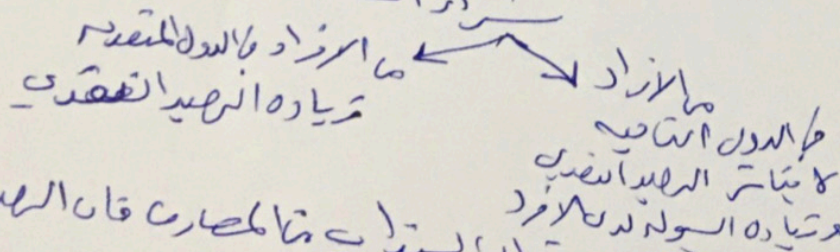 من الافراد في الدول المتقدمه
زياده الرصيد النقدي
من الافراد
في الدول الناميه
لا يتأثر الرصيد النقدي
وزياده السيوله لدى الافراد
من المصارف فان